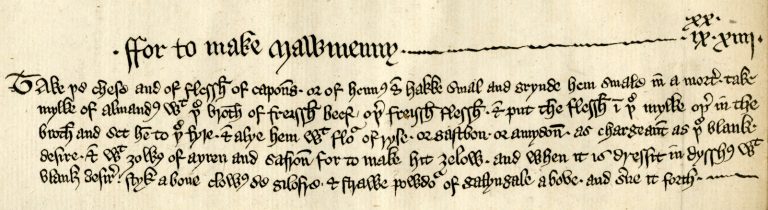 xx
·ffor to make Mawmenny· ix·xiiij·
Take þe chese and of flessh of capons· or of hennes & hakke smal and grynde hem smale in a morter· take
mylke of almandes wt þe broth of freissh beef oþer freissh flessh· & put the flessh in þe mylke oþer in the
broth and set hem to þe fyre· & alye hem wt flor of ryse· or gastbon· or amydon· as chargeant as þe blanke
desire· & wt zolkes of ayren and safron for to make hit zelow· and when it is dressit in dysshes wt
blank desire· styk aboue clowes de gilofre· & strawe powdor of galyngale aboue· and serue it forth·